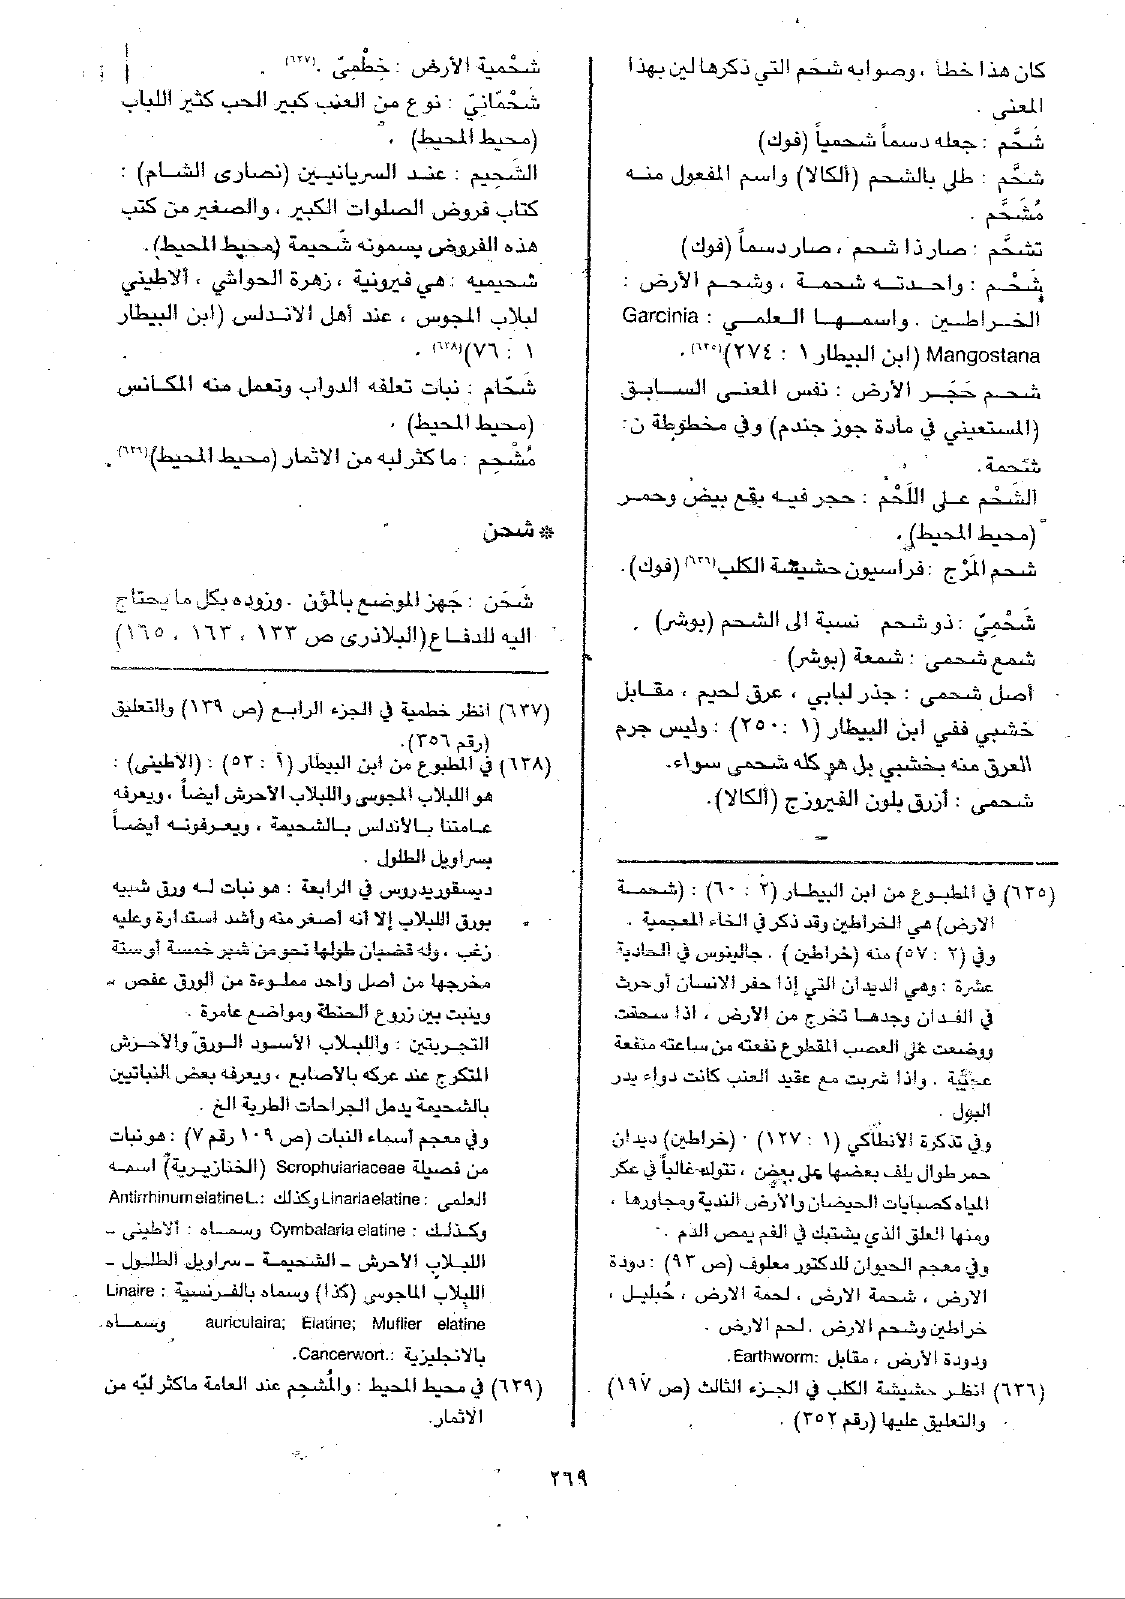 كان هذا خطأ ، وصوابه شحم التي ذكرها لين بهذا
المعنى .
شَحَّم : جعله دسماً شحمياً (فوك)
شحَّم : طلى بالشحم (ألكالا) واسم المفعول منه
مُشَحَّم .
تشحَّم : صار ذا شحم ، صار دسماً (فوك)
شَحْم : واحدته شحمة ، وشحم الأرض :
الخراطين . واسمها العلمي : Garcinia
Mangostana (ابن البيطار ١ : ٢٧٤)(٦٣٥).
شحم حَجَر الأرض : نفس المعنى السابق
(المستعيني في مادة جوز جندم) وفي مخطوطة ن:
شحمة.
الشَحْم على اللَحْم : حجر فيه بقع بيض وحمر
(محيط المحيط) .
شحم المَرْج : فراسيون حشيشة الكلب(٦٣٦) (فوك).
شَحْمِيّ : ذو شحم نسبة الى الشحم (بوشر) .
شمع شحمى : شمعة (بوشر)
أصل شحمى : جذر لبابي ، عرق لحيم ، مقابل
خشبي ففي ابن البيطار (١ : ٢٥٠) : وليس جرم
العرق منه بخشبي بل هو كله شحمى سواء.
شحمى : أزرق بلون الفيروزج (ألكالا).
(٦٣٥) في المطبوع من ابن البيطار (٢ : ٦٠) : (شحمة
الارض) هي الخراطين وقد ذكر في الخاء المعجمة .
وفي (٢ : ٥٧) منه (خراطين) . جالينوس في الحادية
عشرة : وهي الديدان التي إذا حفر الانسان أو حرث
في الفدان وجدها تخرج من الأرض ، اذا سحقت
ووضعت على العصب المقطوع نفعته من ساعته منفعة
عجيبة . واذا شربت مع عقيد العنب كانت دواء يدر
البول .
وفي تذكرة الأنطاكي (١ : ١٢٧) . (خراطين) ديدان
حمر طوال يلف بعضها على بعض ، تتولد غالباً في عكر
المياه كصبابات الحيضان والأرض الندية ومجاورها ،
ومنها العلق الذي يشتبك في الفم يمص الدم .
وفي معجم الحيوان للدكتور معلوف (ص ٩٣) : دودة
الارض ، شحمة الارض ، لحمة الارض ، خُبليل ،
خراطين وشحم الارض . لحم الارض .
ودودة الأرض ، مقابل :Earthworm.
(٦٣٦) انظر حشيشة الكلب في الجزء الثالث (ص ١٩٧)
والتعليق عليها (رقم ٣٥٢) .
شحْمية الأرض : خِطْمىّ .(٦٣٧)
شَحْمَانيّ : نوع من العنب كبير الحب كثير اللباب
(محيط المحيط) .
الشَحِيم : عند السريانيين (نصارى الشام) :
كتاب فروض الصلوات الكبير ، والصغير من كتب
هذه الفروض يسمونه شحيمة (محيط المحيط).
شحيميه : هي فيرونية ، زهرة الحواشي ، ألاطيني
لبلاب المجوس ، عند أهل الاندلس (ابن البيطار
١ : ٧٦)(٦٣٨) .
شَحَّام : نبات تعلفه الدواب وتعمل منه المكانس
(محيط المحيط) .
مُشْحِم : ما كثر لبه من الاثمار (محيط المحيط)(٦٣٩) .
* شحن
شَحَن : جَهز الموضع بالمؤن . وزوده بكل ما يحتاج
اليه للدفاع (البلاذرى ص ١٣٣ ، ١٦٣ ، ١٦٥)
(٦٣٧) انظر خطمية في الجزء الرابع (ص ١٣٩) والتعليق
(رقم ٣٥٦).
(٦٣٨) في المطبوع من ابن البيطار (١ : ٥٣) : (الاطينى) :
هو اللبلاب المجوسى واللبلاب الأحرش أيضاً ، ويعرفه
عامتنا بالأندلس بالشحيمة ، ويعرفونه أيضاً
بسراويل الطلول .
ديسقوريدوس في الرابعة : هو نبات له ورق شبيه
بورق اللبلاب إلا أنه أصغر منه وأشد استدارة وعليه
زغب ، وله قضبان طولها نحو من شبر خمسة أو ستة
مخرجها من أصل واحد مملوءة من الورق عفص ،
وينبت بين زروع الحنطة ومواضع عامرة .
التجربتين : واللبلاب الأسود الورق والأحرش
المتكرج عند عركه بالأصابع ، ويعرفه بعض النباتيين
بالشحيمة يدمل الجراحات الطرية الخ .
وفي معجم أسماء النبات (ص ١٠٩ رقم ٧) : هو نبات
من فصيلة Scrophulariaceae (الخنازيرية) اسمه
العلمي : Linaria elatine وكذلك : .Antirrhinum elatine L
وكذلك : Cymbalaria elatine وسماه : ألاطينى –
اللبلاب الأحرش – الشحيمة – سراويل الطلول –
اللبلاب الماجوسى (كذا) وسماه بالفرنسية : Linaire
auriculaira; Elatine; Muflier elatine وسماه
بالانجليزية :.Cancerwort.
(٦٣٩) في محيط المحيط : والمُشحم عند العامة ماكثر لبّه من
الاثمار.
٢٦٩